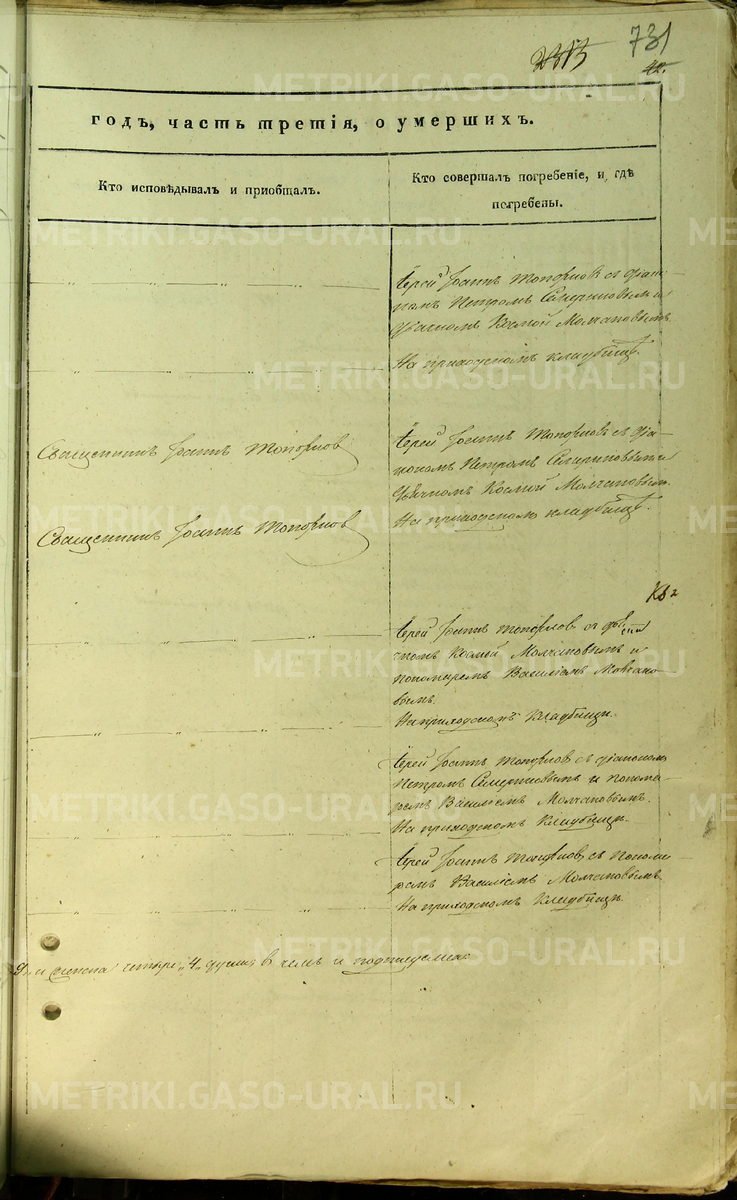 731
2313
42.
годъ, часть третія, о умершихъ.
Кто исповѣдывалъ и пріобщалъ.
Кто совершалъ погребеніе, и гдѣ
погребены.
Іерей Іоаннъ Топорковъ съ діако-
номъ Петромъ и
дьячкомъ Космой Молчановымъ
На приходскомъ кладбищѣ.
Священникъ Іоаннъ Топорковъ
Іерей Іоаннъ Топорковъ съ діа-
кономъ Петромъ и
дьячкомъ Космой Молчановымъ.
На приходскомъ кладбищѣ.
Священникъ Іоаннъ Топорковъ
Іерей Іоаннъ Топорковъ съ
Космой Молчановымъ и
пономаремъ Василіемъ Молчано-
вымъ.
На приходскомъ кладбищѣ.
Іерей Іоаннъ Топорковъ съ діакономъ
Петромъ и понома-
ремъ Василіемъ Молчановымъ.
На приходскомъ кладбищѣ.
Іерей Іоаннъ Топорковъ съ понома-
ремъ Василіемъ Молчановымъ
На приходскомъ кладбищѣ.
четыре „4„ души въ чемъ и подписуемся:
METRIKI.GASO-URAL.RU